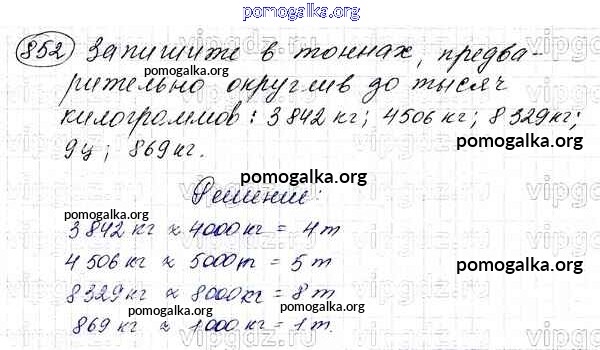 pomogalka.org
852 Запишите в тоннах, предва-
рительно округлив до тысяч
килограммов: 3 842 кг; 4 506 кг; 8 329 кг;
9 ц; 869 кг.
Решение:
3 842 кг ≈ 4000 кг = 4 т
4 506 кг ≈ 5000 т = 5 т
8 329 кг ≈ 8000 кг = 8 т
869 кг ≈ 1000 кг = 1 т.
pomogalka.org
pomogalka.org
pomogalka.org
pomogalka.org
pomogalka.org
pomogalka.org
pomogalka.org
pomogalka.org
pomogalka.org